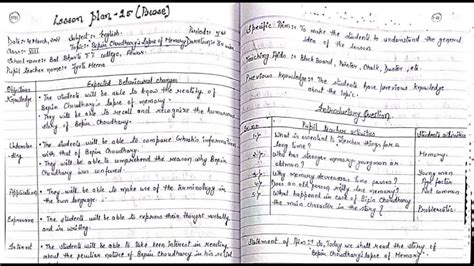 Lesson plan - 25 (Prose)
Date: March, 2022 Subject :- English Period:- 1st
Class: VIII Topic :- Bepin Choudhary's Lapse of Memory Duration:- 30 min
School name: Bal Bharti T.T. college, Alwar
Pupil teacher name: Jyoti Meena
Objectives Expected Behavioural changes
Knowledge • The students will be able to know the reality of
Bepin Choudhary's lapse of memory.
• They will be able to recall and recognize the humorous
story of Bepin Choudhary.
Understanding • The students will be able to compare information
with that of Bepin Choudhary.
• They will be able to comprehend the reason why Bepin
Choudhary was confused.
Application • They will be able to make use of the terminology in
the own language.
Expression • The students will be able to express their thought verbally
and in writing.
Interest • The students will be able to take keen interest in reading
about the peculiar nature of Bepin Choudhary in his
Specific Aim :- To make the students to understand the general
idea of the story.
Teaching Aids :- Black Board, Pointer, Chalk, Duster, etc.
Previous Knowledge :- The students have previous knowledge
about the topic.
Introductory Question
Pupil teacher activities Students activities
What is essential to member things for a
long time? Memory.
Who has stronger memory young man or
oldman? Young man
Why memory decreases time passes? Age factor
Does an old person only lose memory? Not common
What happened in case of Bepin Choudhary
the main character in the story? Problematic.
Statement of Aim :- So, Today we shall read the story of
Bepin Choudhary's Lapse of Memory.